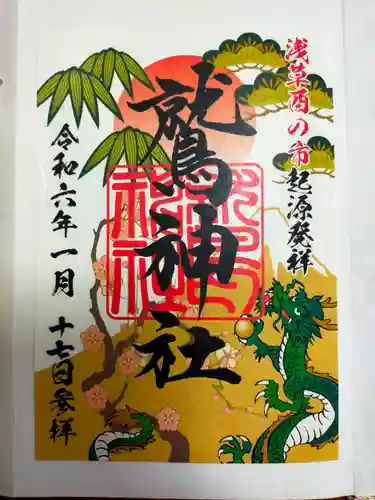 浅草酉の市起源発祥
鷲神社
令和六年一月 十七日参拝